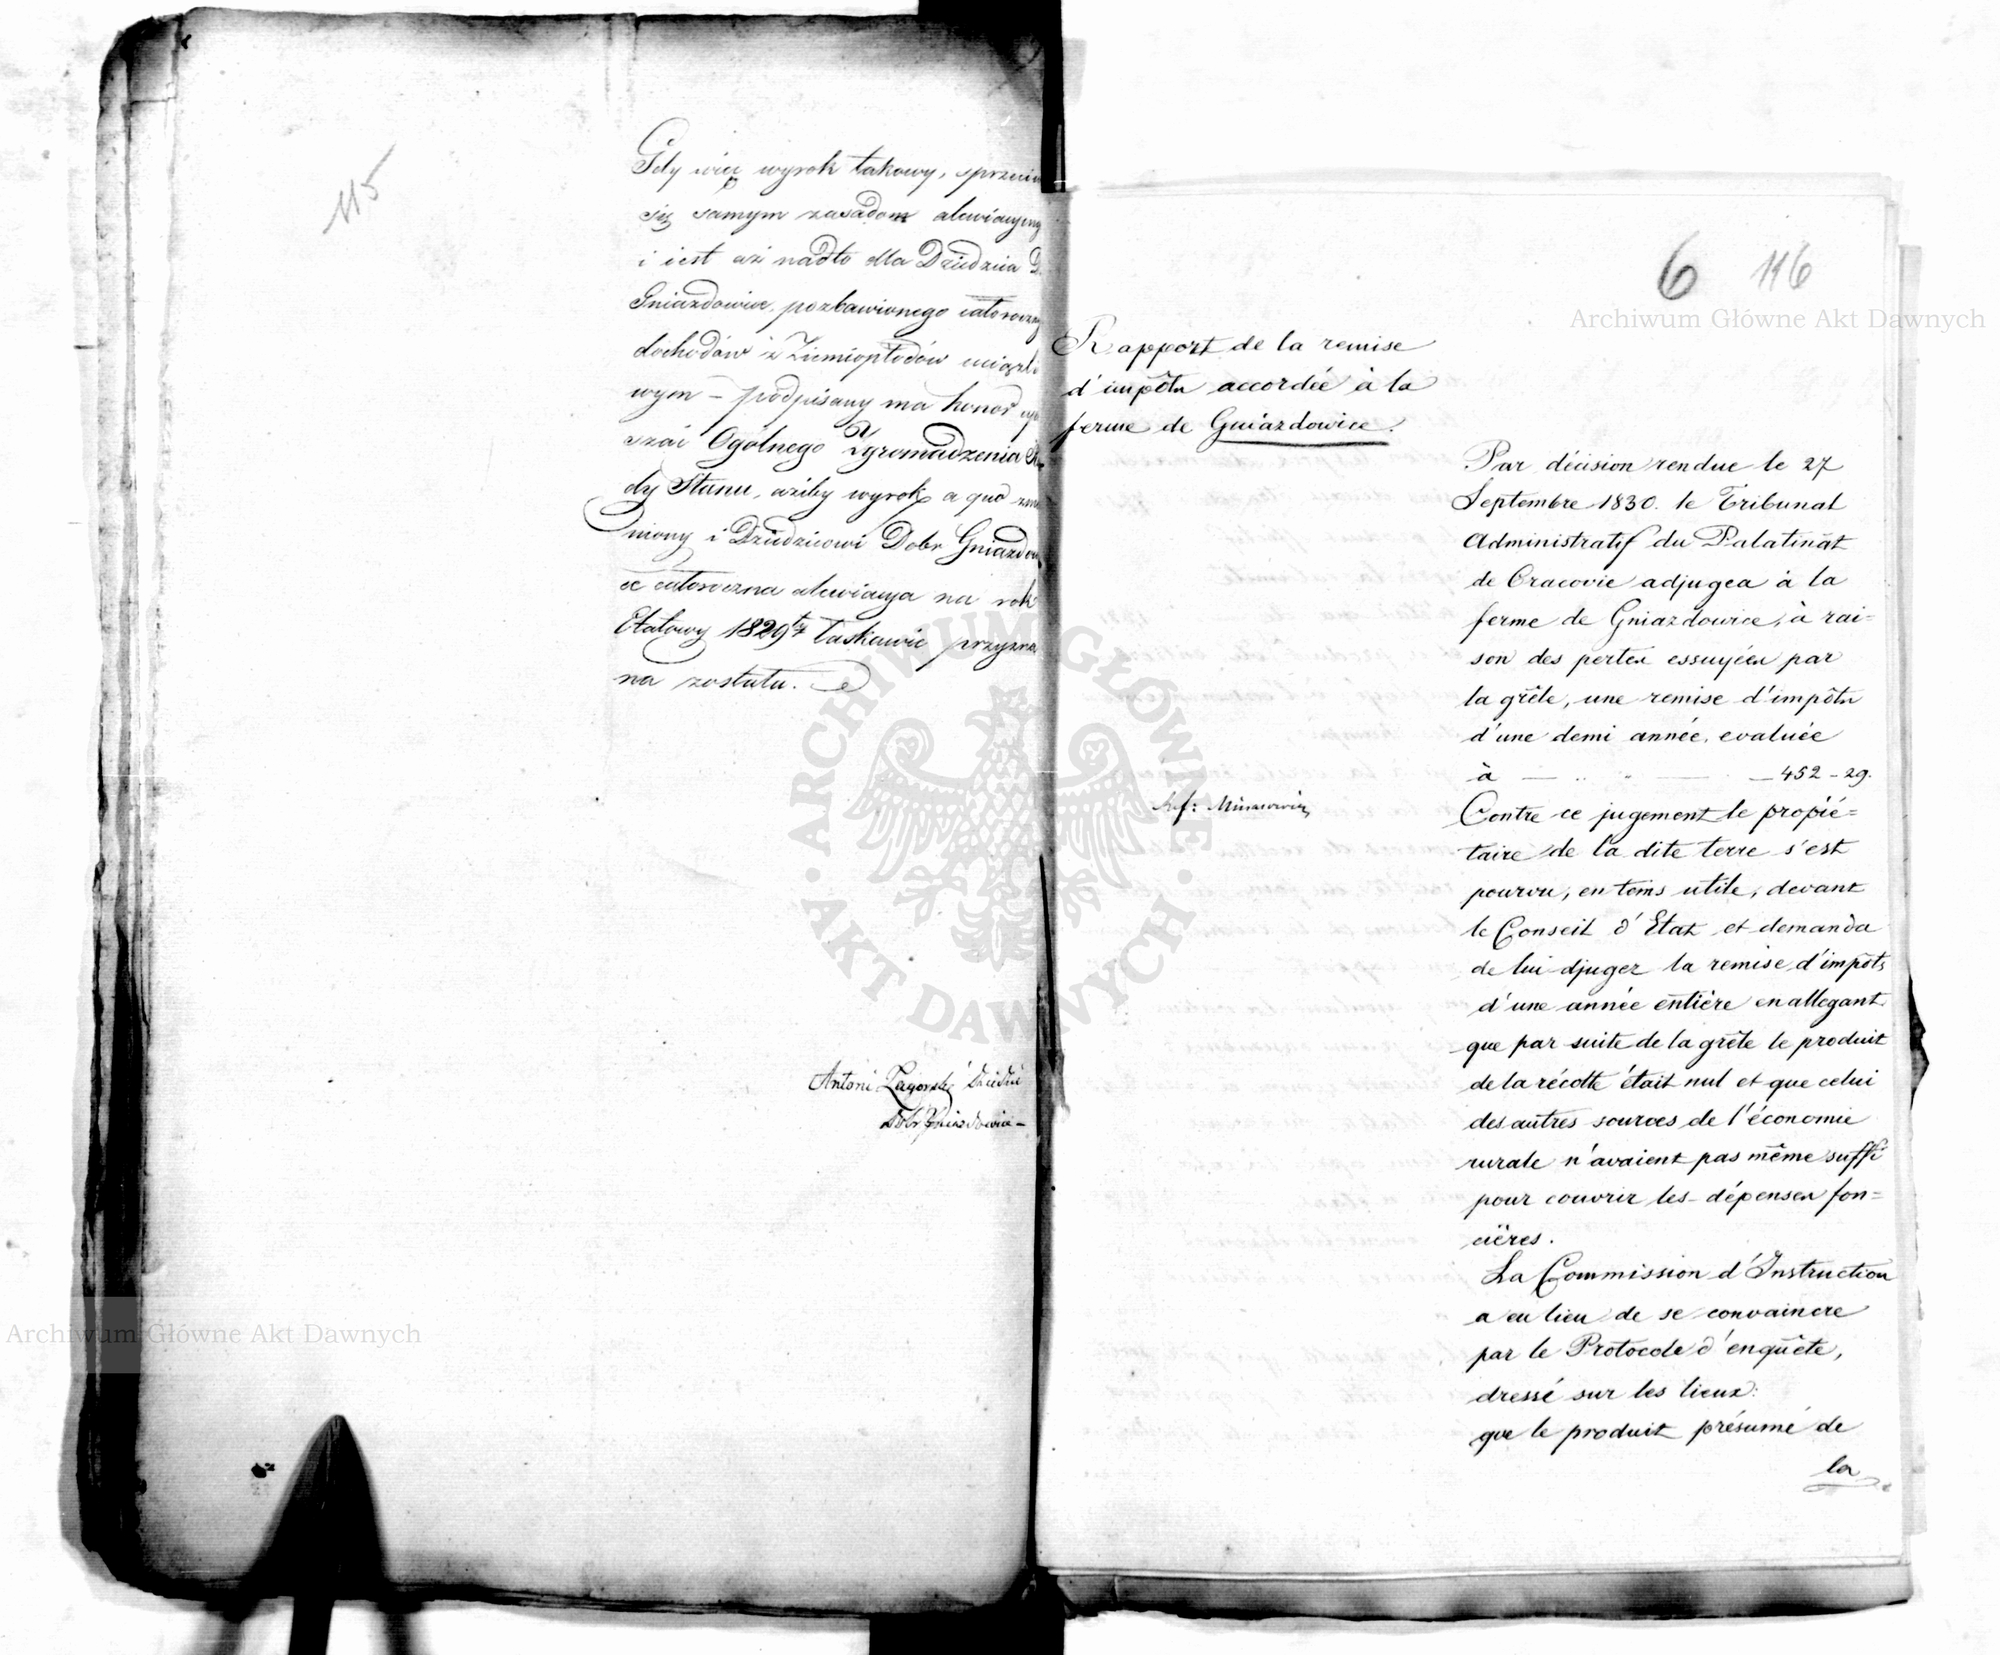 115
Gdy więc wyrok takowy, sprzeciw
się samym zasadom alewiacying
i iest aż nadto dla Dziedzica D.
Gniazdowice, pozbawionego całoroczny
dochodów z Ziemiopłodów uciążli
wym – podpisany ma honor upr
szać Ogólnego Zgromadzenia Ra
dy Stanu, ażeby wyrok a quo zmie
niony i Dziedzicowi Dobr Gniazdowi
ce całoroczna alewiacya na rok
Etatowy 1829ty łaskawie przyzna
na została.
Antoni Dziedzic
Dobr Gniazdowice –
6 116
Rapport de la remise
d'impôts accordée à la
ferme de Gniazdowice.
Par décision rendue le 27
Septembre 1830. le Tribunal
Administratif du Palatinat
de Cracovie adjugea à la
ferme de Gniazdowice, à rai=
son des pertes essuyées par
la grêle, une remise d'impôts
d'une demi année, evaluée
à — „ „ — — 452 - 29.
Ref: Minasowicz
Contre ce jugement le propié=
taire de la dite terre s'est
pourvu, en tems utile, devant
le Conseil d'Etat et demanda
de lui djuger la remise d'impôts
d'une année entière en allegant
que par suite de la grêle le produit
de la récolte était nul et que celui
des autres sources de l'économie
rurale n'avaient pas même suffi
pour couvrir les dépenses fon=
cières.
La Commission d'Instruction
a eu lieu de se convaincre
par le Protocole d'enquête,
dressé sur les lieux:
que le produit présumé de
la
Archiwum Główne Akt Dawnych
Archiwum Główne Akt Dawnych
ARCHIWUM GŁÓWNE
AKT DAWNYCH